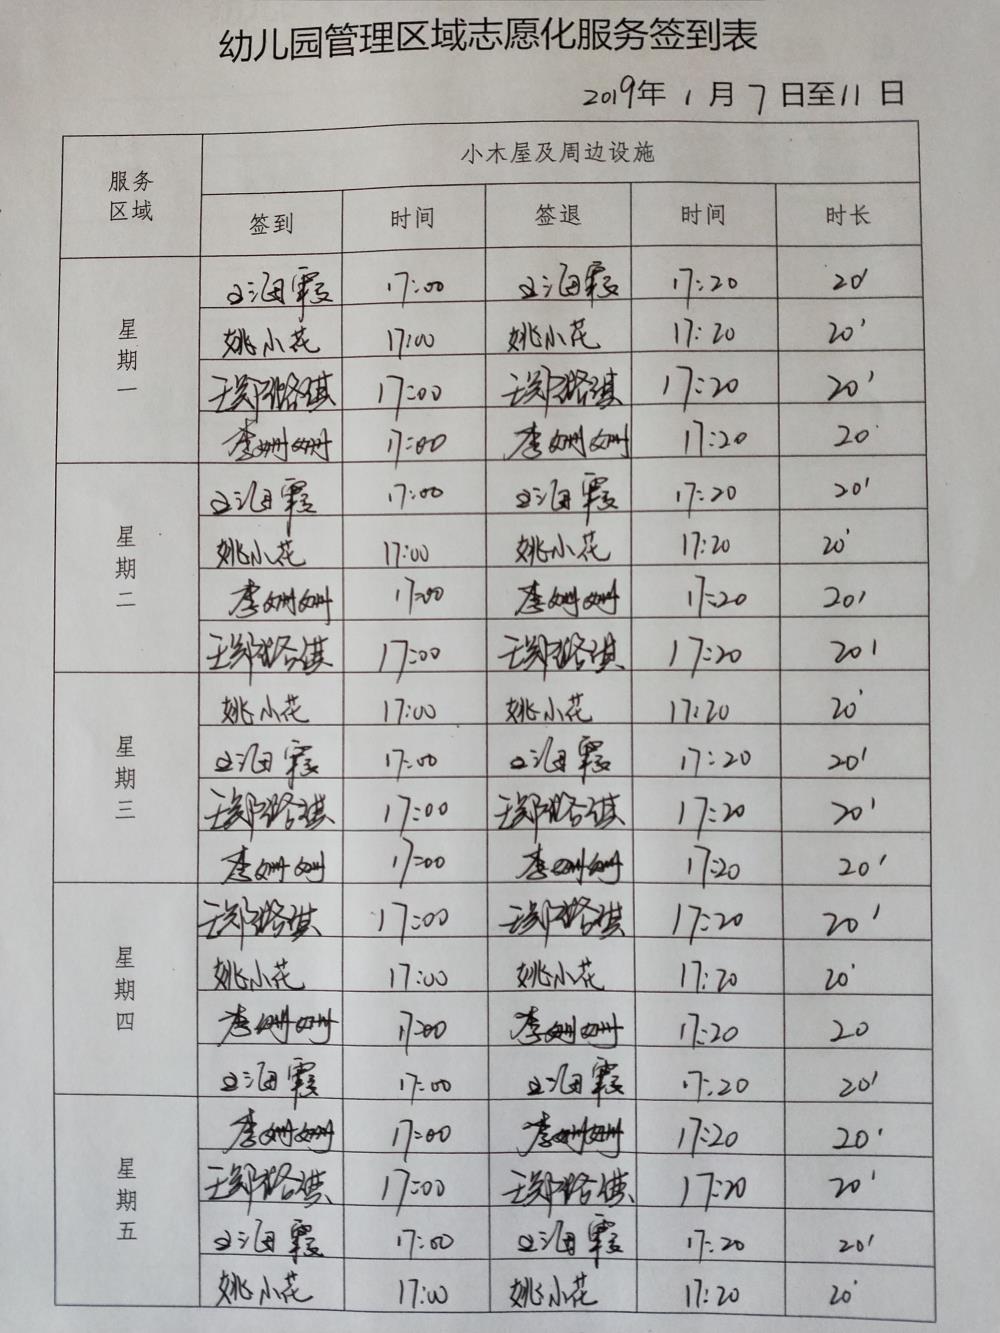 幼儿园管理区域志愿化服务签到表
2019年 1 月 7 日至11 日
服务区域 小木屋及周边设施
签到 时间 签退 时间 时长
星期一
海霞 17:00 海霞 17:20 20'
姚小花 17:00 姚小花 17:20 20'
王郑璐琪 17:00 王郑璐琪 17:20 20'
李姗姗 17:00 李姗姗 17:20 20'
星期二
海霞 17:00 海霞 17:20 20'
姚小花 17:00 姚小花 17:20 20'
李姗姗 17:00 李姗姗 17:20 20'
王郑璐琪 17:00 王郑璐琪 17:20 20'
星期三
姚小花 17:00 姚小花 17:20 20'
海霞 17:00 海霞 17:20 20'
王郑璐琪 17:00 王郑璐琪 17:20 20'
李姗姗 17:00 李姗姗 17:20 20'
星期四
王郑璐琪 17:00 王郑璐琪 17:20 20'
姚小花 17:00 姚小花 17:20 20'
李姗姗 17:00 李姗姗 17:20 20
海霞 17:00 海霞 17:20 20'
星期五
李姗姗 17:00 李姗姗 17:20 20'
王郑璐琪 17:00 王郑璐琪 17:20 20'
海霞 17:00 海霞 17:20 20'
姚小花 17:00 姚小花 17:20 20'